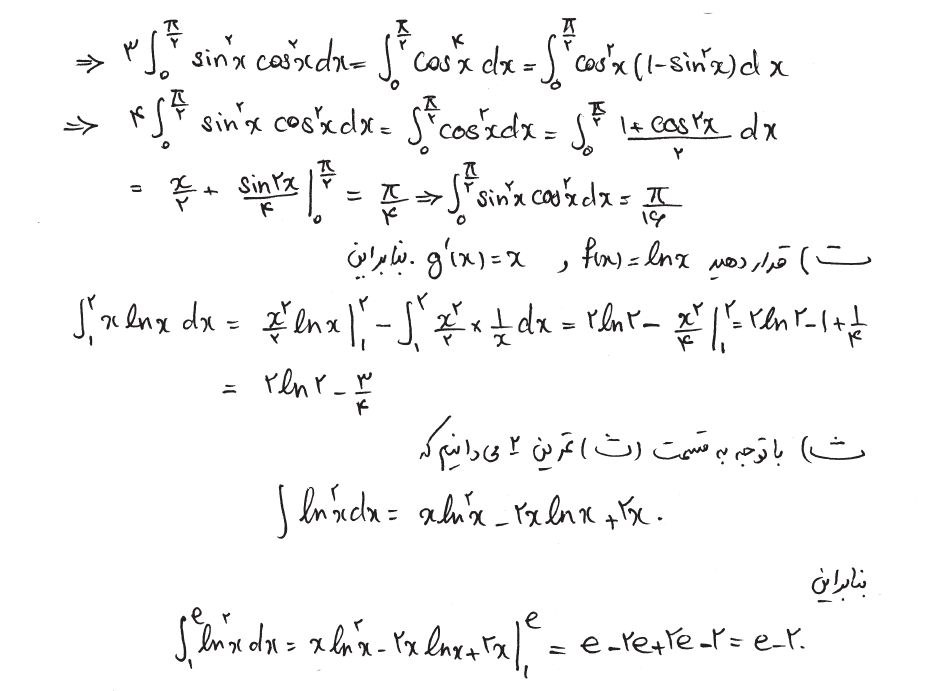 ⇒ ۳∫₀^{π/۲} sin^۲x cos^۲x dx = ∫₀^{π/۲} cos^۴x dx = ∫₀^{π/۲} cos^۲x (1 - sin^۲x) dx
⇒ ۴∫₀^{π/۲} sin^۲x cos^۲x dx = ∫₀^{π/۲} cos^۲x dx = ∫₀^{π/۲} (1 + cos ۲x)/۲ dx
= x/۲ + sin ۲x/۴ |₀^{π/۲} = π/۴ ⇒ ∫₀^{π/۲} sin^۲x cos^۲x dx = π/۱۶
ت) قرار دهید f(x) = ln x و g′(x) = x. بنابراین
∫₁^۲ x ln x dx = x^۲/۲ ln x |₁^۲ - ∫₁^۲ x^۲/۲ × ۱/x dx = ۲ln۲ - x^۲/۴ |₁^۲ = ۲ln۲ - ۱ + ۱/۴
= ۲ln۲ - ۳/۴
ث) با توجه به قسمت (ث) تمرین ۲ می دانیم که
∫ ln^۲x dx = x ln^۲x - ۲x ln x + ۲x.
بنابراین
∫₁^e ln^۲x dx = x ln^۲x - ۲x ln x + ۲x |₁^e = e - ۲e + ۲e - ۲ = e - ۲.